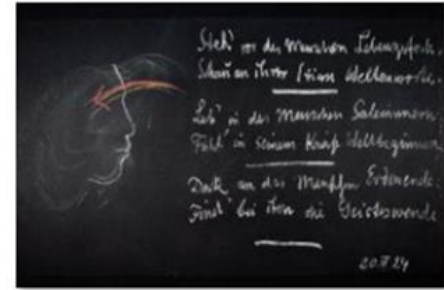 Steh' vor des Menschen Lebenspforte:
Schau an ihrer Stirn Weltenworte.
Leb' in des Menschen Seeleninnern:
Fühl' in seinem Kreis Weltbeginnen.
Denk an das Menschen Erdenende:
Find' bei ihm die Geisteswende.
24